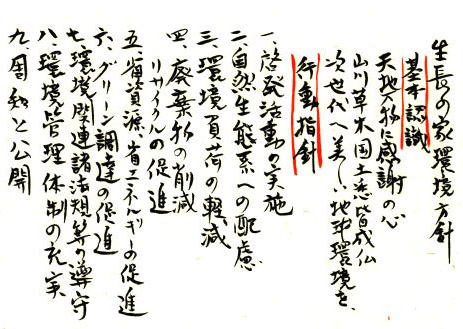 生長の家環境方針
基本認識
天地万物に感謝の心
山川草木国土悉皆成仏
次世代へ美しい地球環境を
行動指針
一、啓発活動の実施
二、自然生態系への配慮
三、環境負荷の軽減
四、廃棄物の削減
リサイクルの促進
五、省資源、省エネルギーの促進
六、グリーン調達の促進
七、環境関連諸法規等の遵守
八、環境管理体制の充実
九、周知と公開